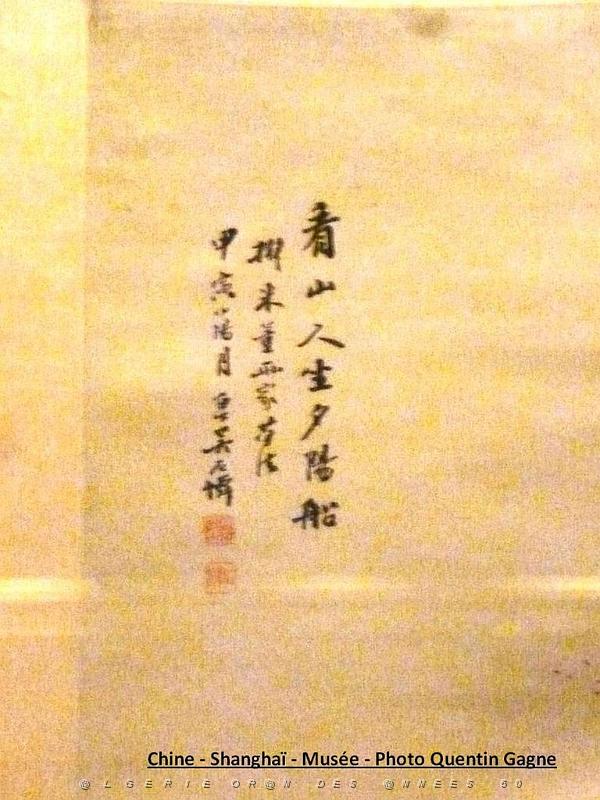 看山人坐夕陽船
米董兩家法
甲寅小陽月吳
Chine - Shanghaï - Musée - Photo Quentin Gagne
@LGERIE OR@N DES @NNEES 60